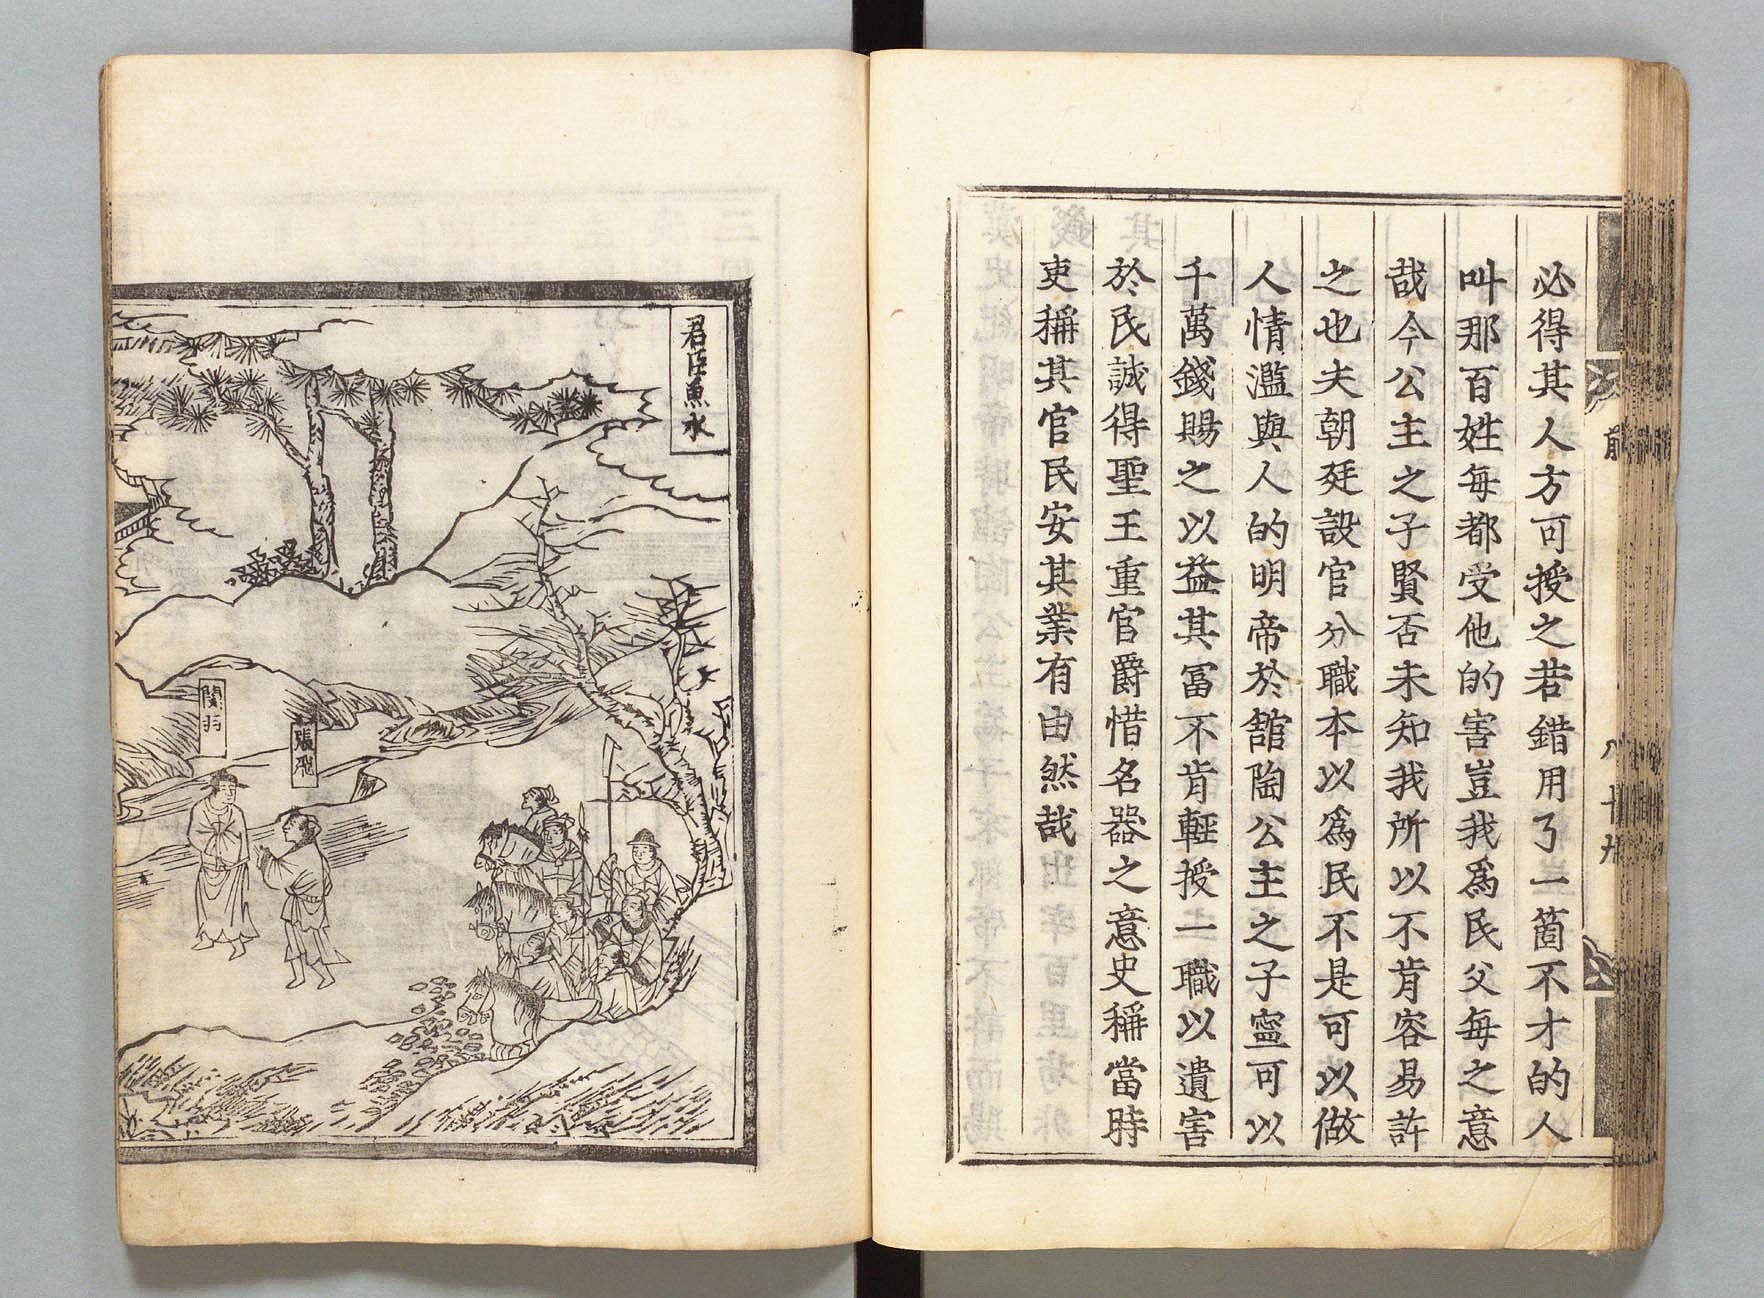 必得其人方可授之若錯用了一箇不才的人
叫那百姓每都受他的害豈我爲民父每之意
哉今公主之子賢否未知我所以不肯容易許
之也夫朝廷設官分職本以爲民不是可以做
人情濫與人的明帝於舘陶公主之子寍可以
千萬錢賜之以益其冨不肯輕授一職以遺害
於民誠得聖王重官爵惜名器之意史稱當時
吏稱其官民安其業有由然哉
君臣魚水
張飛
関羽